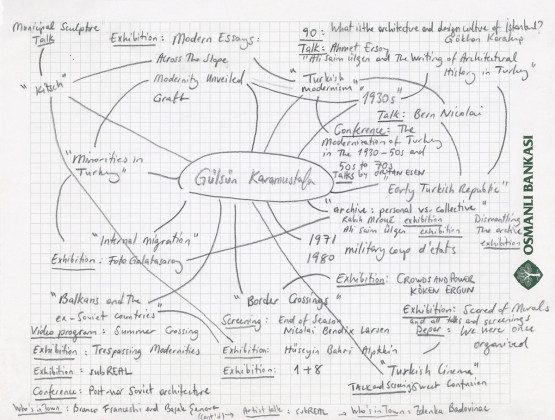 Municipal Sculpture
Talk
Exhibition: Modern Essays:
Across The Slope
Modernity Unveiled
Graft
90: What is the architecture and design culture of Istanbul?
Gökhan Karakuş
Talk: Ahmet Ersoy
"Ali saim ülgen and The Writing of Architectural
History in Turkey"
"Kitsch"
"Turkish
modernism"
"1930s"
Talk: Bern Nicolai
Conference: The
Modernization of Turkey
in The 1930-50s and
50s to 70s
Talks by
"Minorities in
Turkey"
Gülsün Karamustafa
"Early Turkish Republic"
"archive: personal vs. collective"
Rabih Mroué exhibition
Ali saim ülgen exhibition
Dismantling
The archive
exhibition
"Internal migration"
Exhibition: Foto Galatasaray
1971
1980
military coup d'etats
Exhibition: CROWDS AND POWER
KÖKEN ERGUN
"Balkans and The
ex-Soviet countries"
"Border Crossings"
Screening: End of Season
Nicolai Bendix Larsen
Exhibition: Scored of Murals
and all talks and screenings
Depar: We were once
organized
Video program: Summer Crossing
Exhibition: Trespassing Modernities
Exhibition: Hüseyin Bahri Alptekin
Exhibition: subREAL
Exhibition: 1+8
"Turkish Cinema"
TALK and Screening: Sweet Confusion
Conference: Post-war Soviet architecture
Who's in Town: Branco Franceshi and
Artist talk: subREAL
Who's in Town: Zdenka Badovinac
OSMANLI BANKASI